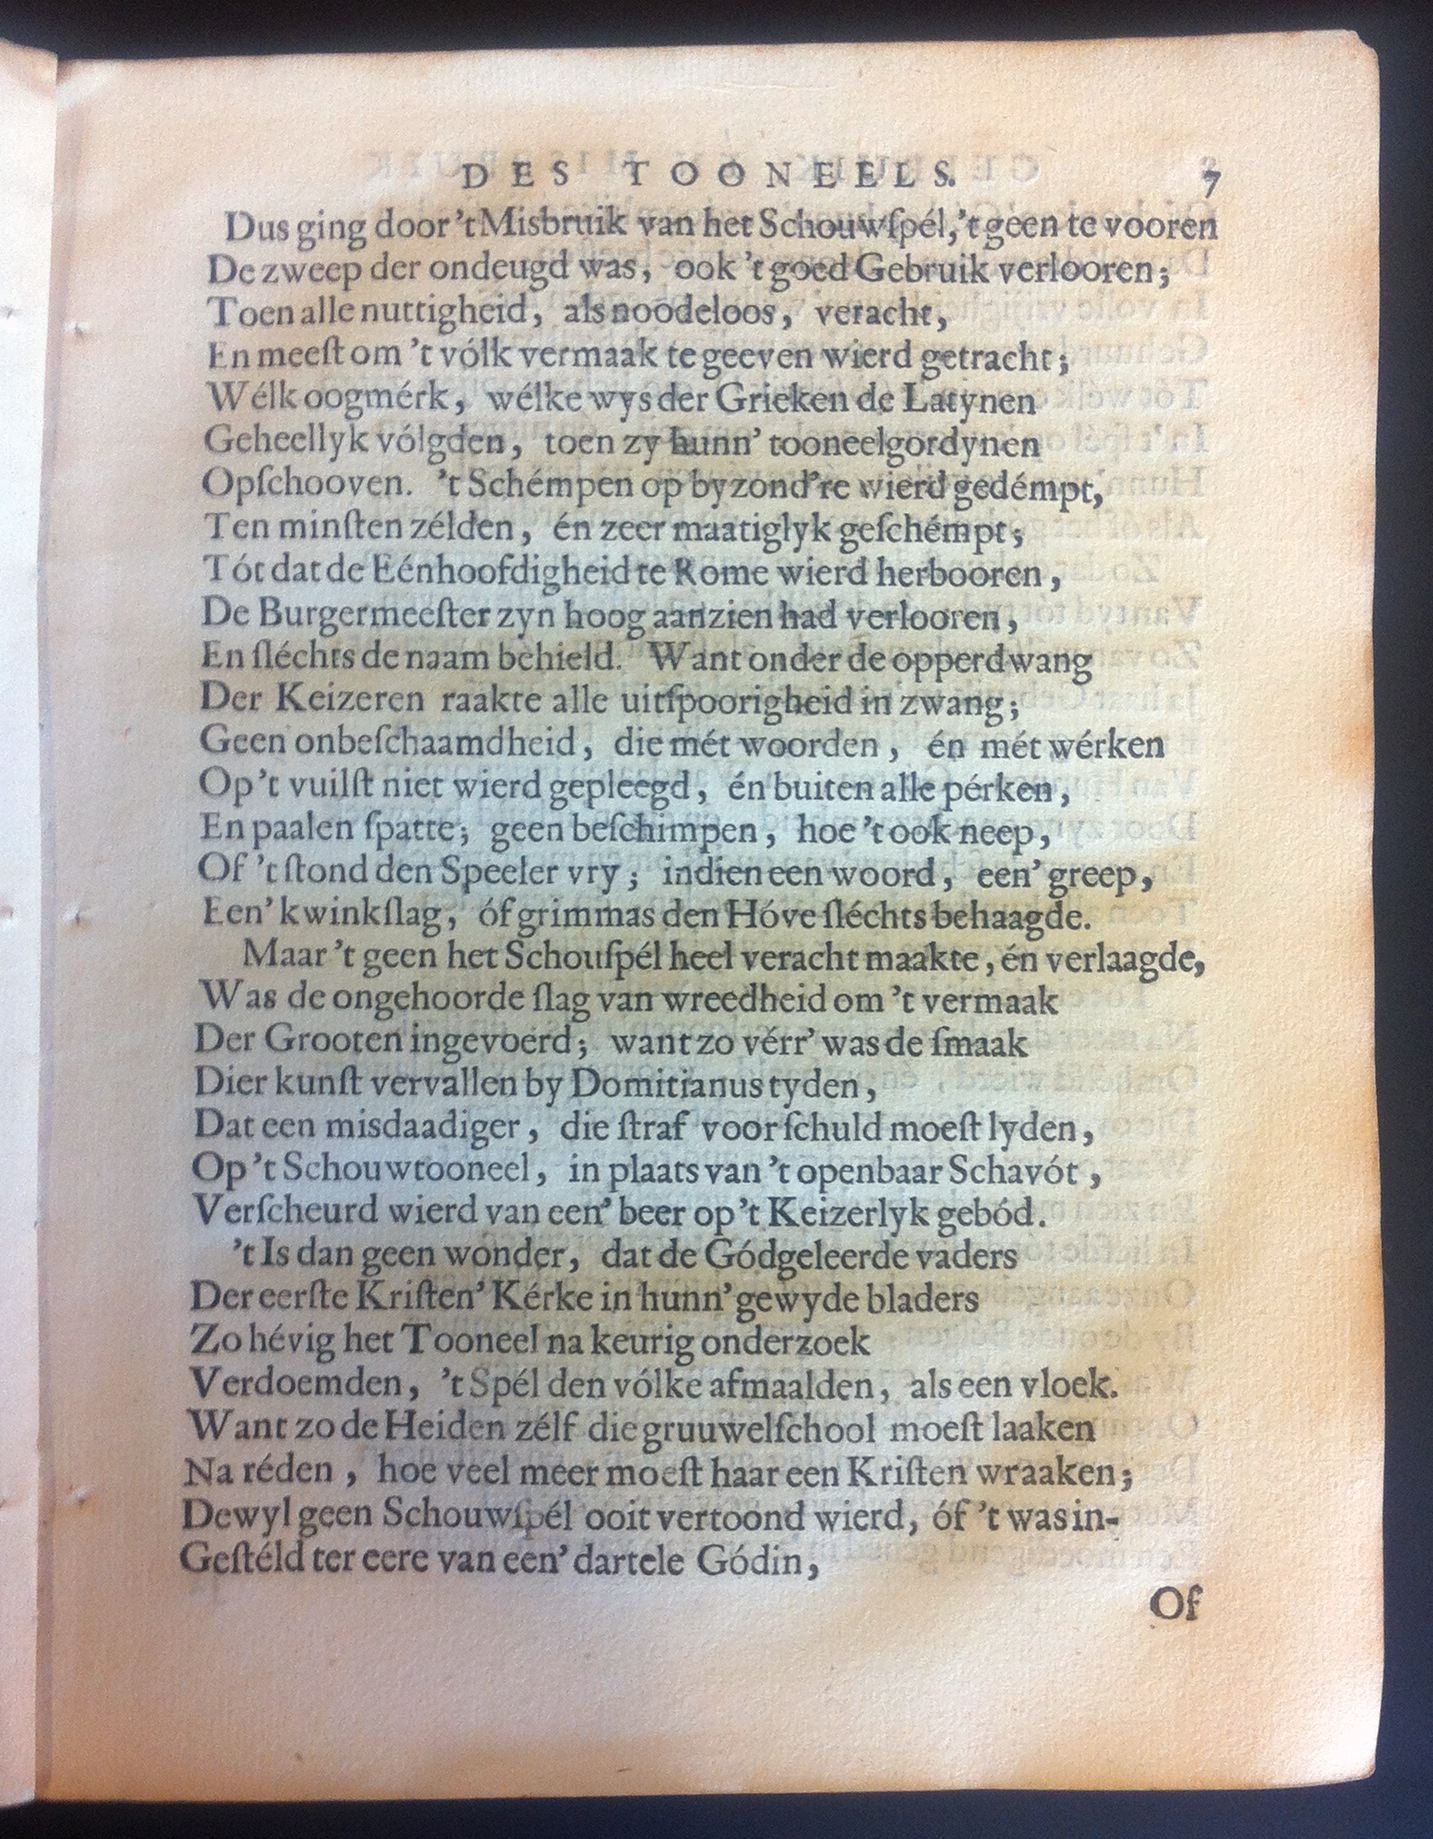 DES TOONEELS. 7
Dus ging door 't Misbruik van het Schouwſpél, 't geen te vooren
De zweep der ondeugd was, ook 't goed Gebruik verlooren;
Toen alle nuttigheid, als noodeloos, veracht,
En meeſt om 't vólk vermaak te geeven wierd getracht;
Wélk oogmérk, wélke wys der Grieken de Latynen
Geheellyk vólgden, toen zy hunn' tooneelgordynen
Opſchooven. 't Schémpen op byzond're wierd gedémpt,
Ten minſten zélden, én zeer maatiglyk geſchémpt;
Tót dat de Eénhoofdigheid te Rome wierd herbooren,
De Burgermeeſter zyn hoog aanzien had verlooren,
En ſléchts de naam behield. Want onder de opperdwang
Der Keizeren raakte alle uitſpoorigheid in zwang;
Geen onbeſchaamdheid, die mét woorden, én mét wérken
Op 't vuilſt niet wierd gepleegd, én buiten alle pérken,
En paalen ſpatte; geen beſchimpen, hoe 't ook neep,
Of 't ſtond den Speeler vry; indien een woord, een' greep,
Een' kwinkſlag, óf grimmas den Hóve ſléchts behaagde.
Maar 't geen het Schouſpél heel veracht maakte, én verlaagde,
Was de ongehoorde ſlag van wreedheid om 't vermaak
Der Grooten ingevoerd; want zo vérr' was de ſmaak
Dier kunſt vervallen by Domitianus tyden,
Dat een misdaadiger, die ſtraf voor ſchuld moeſt lyden,
Op 't Schouwtooneel, in plaats van 't openbaar Schavót,
Verſcheurd wierd van een' beer op 't Keizerlyk gebód.
't Is dan geen wonder, dat de Gódgeleerde vaders
Der eerſte Kriſten' Kérke in hunn' gewyde bladers
Zo hévig het Tooneel na keurig onderzoek
Verdoemden, 't Spél den vólke afmaalden, als een vloek.
Want zo de Heiden zélf die gruuwelſchool moeſt laaken
Na réden, hoe veel meer moeſt haar een Kriſten wraaken;
Dewyl geen Schouwſpél ooit vertoond wierd, óf 't was in-
Geſtéld ter eere van een' dartele Gódin,
Of